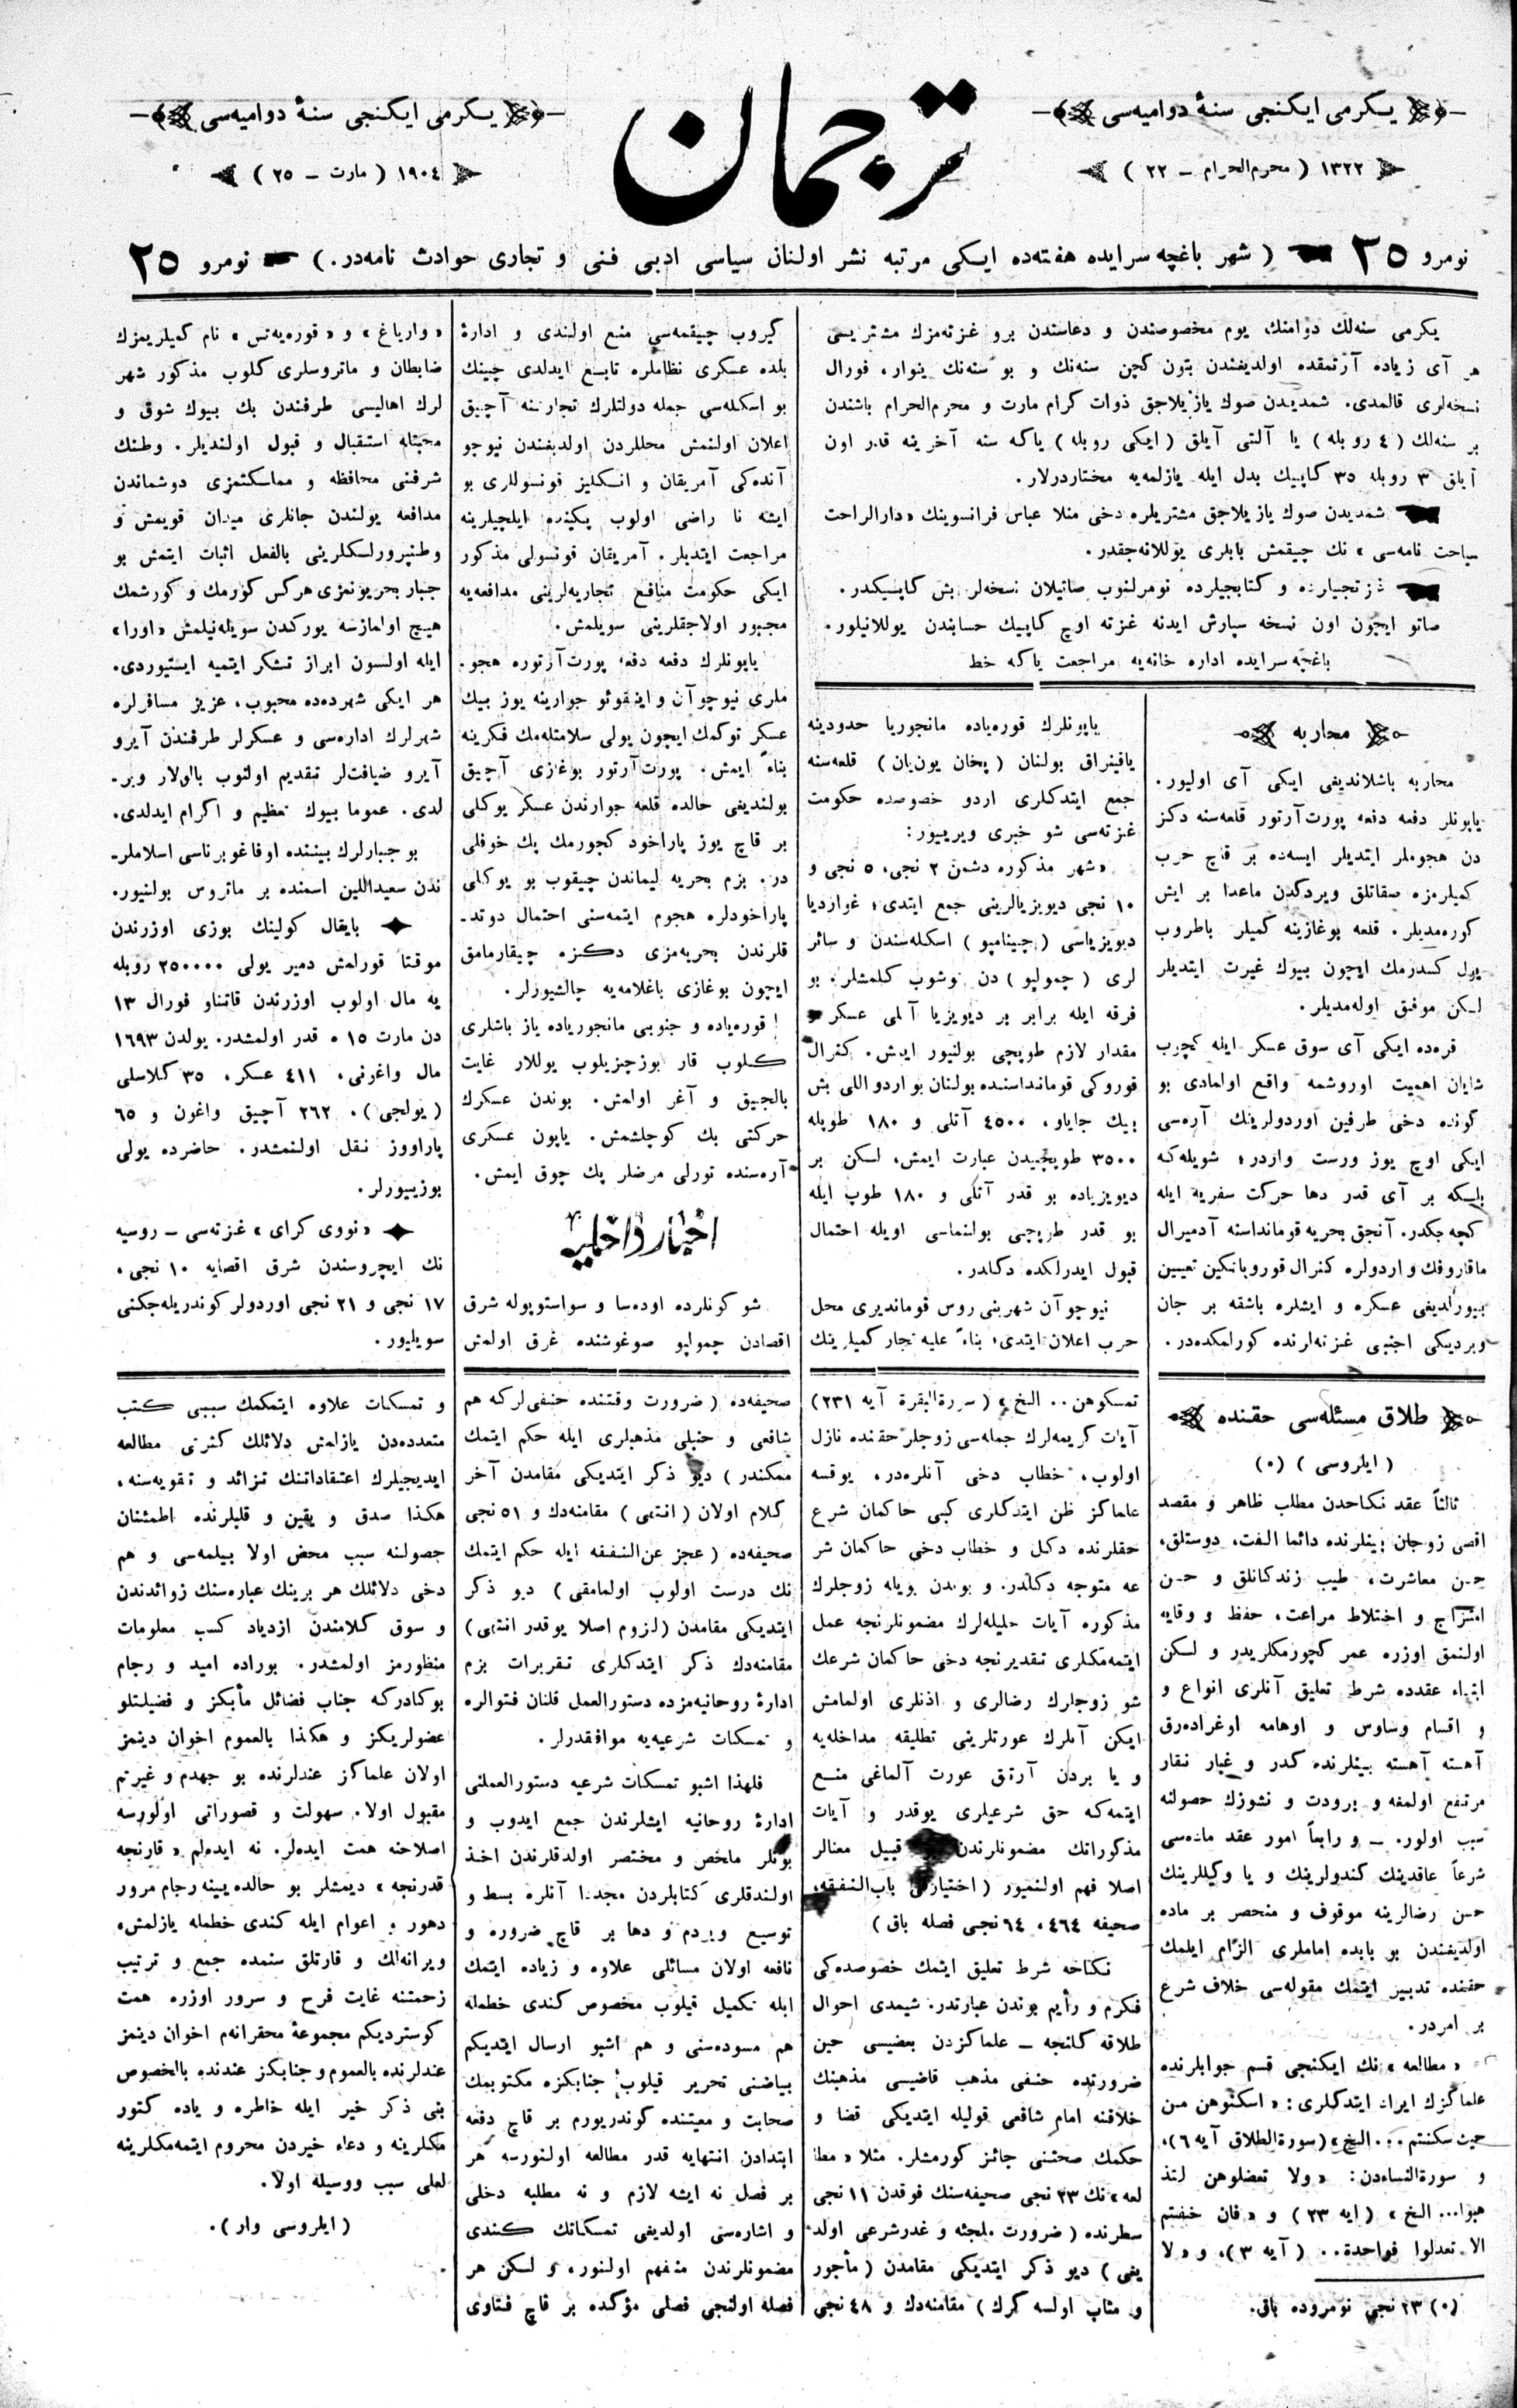 یكرمی ایكنجی سنهٔ دوامیه‌سی
ترجمان
یكرمی ایكنجی سنهٔ دوامیه‌سی
١٣٢٢ ( محرم‌الحرام ـ ٢٢ )
١٩٠٤ ( مارت ـ ٢٥ )
نومرو ٢٥ ( شهر باغچه سرایده هفته‌ده ایكی مرتبه نشر اولنان سیاسی ادبی فنی و تجاری حوادث نامه‌در. ) نومرو ٢٥
یكرمی سنه‌لك دوامنك یوم مخصوصندن و دعاسندن برو غزته‌مزك مشتریسی
هر آی زیاده آرتمقده اولدیغندن بتون كچن سنه‌نك و بو سنه‌نك ینوار، فورال
نسخه‌لری قالمدی. شمدیدن صوك یازیلاجق ذوات كرام مارت و محرم‌الحرام باشندن
بر سنه‌لك ( ٤ روبله ) یا آلتی آیلق ( ایكی روبله ) یاكه سنه آخرینه قدر اون
آیلق ٣ روبله ٣٥ كاپیك بدل ایله یازلمه‌یه مختاردرلار.
شمدیدن صوك یازیلاجق مشتریلره دخی منلا عباس فرانسوینك « دارالراحت
سیاحت نامه‌سی » نك چیقمش بابلری یوللانه‌جقدر.
غزتجیلرده و كتابجیلرده نومرلنوب صاتیلان نسخه‌لر بش كاپیكدر.
صاتو ایچون اون نسخه سپارش ایدنه غزته اوچ كاپیك حسابندن یوللانیلور.
باغچه سرایده اداره خانه‌یه مراجعت یاكه خط
محاربه
محاربه باشلاندیغی ایكی آی اولیور.
یاپونلر دفعه دفعه پورت‌آرتور قلعه‌سنه دكز
دن هجوملر ایتدیلر ایسه‌ده بر قاچ حرب
كمیلرمزه صقاتلق ویردكدن ماعدا بر ایش
كوره‌مدیلر. قلعه بوغازینه كمیلر باطروب
یول كسدرمك ایچون بیوك غیرت ایتدیلر
لیكن موفق اوله‌مدیلر.
قره‌ده ایكی آی سوق عسكر ایله كچوب
شایان اهمیت اوروشمه واقع اولمادی بو
كونده دخی طرفین اوردولرینك آره‌سی
ایكی اوچ یوز ورست واردر؛ شویله‌كه
بلسكه بر آی قدر دها حركت سفریه ایله
كچه‌جكدر. آنجق بحریه قوماندانسنه آدمیرال
ماقاروفك و اردولره كنرال قوروپاتكین تعیین
بیورلدیغی عسكره و ایشلره باشقه بر جان
ویردیكی اجنبی غزته‌لرنده كورلمكده‌در.
یاپونلرك قوره‌یاده مانجوریا حدودینه
یاقینراق بولنان ( پخان یون‌یان ) قلعه‌سنه
جمع ایتدكلری اردو خصوصده حكومت
غزته‌سی شو خبری ویرییور:
« شهر مذكوره دشمن ٢ نجی، ٥ نجی و
١٠ نجی دیویزیالرینی جمع ایتدی؛ غواردیا
دیویزیاسی ( چینامپو ) اسكله‌سندن و سائر
لری ( چمولپو ) دن قوشوب كلمشلر. بو
فرقه ایله برابر بر دیویزیا آتلی عسكر و
مقدار لازم طوپچی بولنیور ایمش. كنرال
قوروكی قومانداسنده بولنان بو اردو اللی بش
بیك جایاو، ٤٥٠٠ آتلی و ١٨٠ طوپله
٣٥٠٠ طوپچیدن عبارت ایمش، لیكن بر
دیویزیاده بو قدر آتلی و ١٨٠ طوپ ایله
بو قدر طوپچی بولنماسی اویله احتمال
قبول ایدرلكده دكلدر.
نیوچوآن شهرینی روس قوماندیری محل
حرب اعلان ایتدی؛ بناءً علیه تجار كمیلرینك
كیروب چیقمه‌سی منع اولندی و ادارهٔ
بلده عسكری نظاملره تابع ایدلدی چینك
بو اسكله‌سی جمله دولتلرك تجارتنه آچیق
اعلان اولنمش محللردن اولدیغندن نیوچو
آنده‌كی آمریقان و انكلیز قونسوللری بو
ایشه نا راضی اولوب پكینده ایلچیلرینه
مراجعت ایتدیلر. آمریقان قونسولی مذكور
ایكی حكومت منافع تجاریه‌لرینی مدافعه‌یه
مجبور اولاجقلرینی سویلمش.
یاپونلرك دفعه دفعه پورت‌آرتوره هجو.
ملری نیوچوآن و اینقوئو جوارینه یوز بیك
عسكر توكمك ایچون یولی سلامتله‌مك فكرینه
بناءً ایمش. پورت‌آرتور بوغازی آچیق
بولندیغی حالده قلعه جوارندن عسكر یوكلی
بر قاچ یوز پاراخود كچورمك پك خوفلی
در. بزم بحریه لیماندن چیقوب بو یوكلی
پاراخودلره هجوم ایتمه‌سنی احتمال دوتد-
قلرندن بحریه‌مزی دكزه چیقارمامق
ایچون بوغازی باغلامه‌یه چالشیورلر.
قوره‌یاده و جنوبی مانجوریاده یاز باشلری
كلوب قار بوزچزیلوب یوللار غایت
بالچیق و آغر اولمش. بوندن عسكرك
حركتی بك كوچلشمش. یاپون عسكری
آره‌سنده تورلی مرضلر پك چوق ایمش.
اخبار داخلیه
شو كونلرده اوده‌سا و سواستوپوله شرق
اقصادن چمولپو صوغوشنده غرق اولمش
« وارياغ » و « قوره‌یه‌تس » نام كمیلریمزك
ضابطان و ماتروسلری كلوب مذكور شهر
لرك اهالیسی طرفندن بك بیوك شوق و
محبتله استقبال و قبول اولندیلر. وطنك
شرفنی محافظه و مملكتمزی دوشماندن
مدافعه یولندن جانلری میدان قویمش و
وطنپرورلسكلرینی بالفعل اثبات ایتمش بو
جبار بحریونمزی هركس كورمك و كورشمك
هیچ اولمازسه یوركدن سویله‌نیلمش « اورا »
ایله اولسون ابراز تشكر ایتمیه ایستیوردی.
هر ایكی شهرده‌ده محبوب، عزیز مسافرلره
شهرلرك اداره‌سی و عسكرلر طرفندن آیرو
آیرو ضیافت‌لر تقدیم اولنوب باللولار ویر-
لدی. عموما بیوك تعظیم و اكرام ایدلدی.
بو جبارلرك بیننده اوفاغوبرناسی اسلاملر-
ندن سعیداللین اسمنده بر ماتروس بولنیور.
بایقال كولینك بوزی اوزرندن
موقتا قورلمش دمیر یولی ٢٥٠٠٠٠ روبله
یه مال اولوب اوزرندن قاتناو فورال ١٣
دن مارت ١٥ ه قدر اولمشدر. یولدن ١٦٩٣
مال واغونی، ٤١١ عسكر، ٣٥ كلاسلی
( یولجی )، ٢٦٢ آچیق واغون و ٦٥
پاراووز نقل اولنمشدر. حاضرده یولی
بوزییورلر.
« نووی كرای » غزته‌سی ـ روسیه
نك ایچروسندن شرق اقصایه ١٠ نجی،
١٧ نجی و ٢١ نجی اوردولر كوندریله‌جكنی
سویلیور.
طلاق مسئله‌سی حقنده
( ایلروسی ) (٠)
ثالثاً عقد نكاحدن مطلب ظاهر و مقصد
اقصی زوجان بینلرنده دائما الفت، دوستلق،
حسن معاشرت، طیب زندكانلق و حسن
امتزاج و اختلاط مراعت، حفظ و وقایه
اولنمق اوزره عمر كچورمكلریدر و لسكن
ابتداء عقدده شرط تعلیق آنلری انواع و
و اقسام وساوس و اوهامه اوغراده‌رق
آهسته آهسته بینلرنده كدر و غبار نقار
مرتفع اولمغه و برودت و نشوزك حصولنه
سبب اولور. ـ و رابعاً امور عقد ماده‌سی
شرعاً عاقدینك كندولرینك و یا وكیللرینك
حسن رضالرینه موقوف و منحصر بر ماده
اولدیغندن بو بابده اماملری الزام ایلمك
حقنده تدبیر ایتمك مقوله‌سی خلاف شرع
بر امردر.
« مطالعه » نك ایكنجی قسم جوابلرنده
علماكزك ایراد ایتدكلری : « اسكنوهن من
حیث سكنتم ... الخ » ( سورة‌الطلاق آیه ٦ )،
و سورة‌النساء‌دن : « ولا تعضلوهن لتذ
هبوا... الخ » ( ایه ٢٣ ) و « فان خفتم
الا تعدلوا فواحدة.. ( آیه ٣ )، و « لا
(٠) ٢٣ نجی نومروده باق.
تمسكوهن .. الخ » ( سورة‌البقرة آیه ٢٣١ )
آیات كریمه‌لرك جمله‌سی زوجلر حقنده نازل
اولوب، خطاب دخی آنلره‌در، یوقسه
علماكز ظن ایتدكلری كبی حاكمان شرع
حقلرنده دكل و خطاب دخی حاكمان شر
عه متوجه دكلدر. و بوندن بویله زوجلرك
مذكوره آیات جلیله‌لرك مضمونلرنجه عمل
ایتمه‌مكلری تقدیرنجه دخی حاكمان شرعك
شو زوجلرك رضالری و اذنلری اولمامش
ایكن آنلرك عورتلرینی تطلیقه مداخله‌یه
و یا بردن آرتق عورت آلماغی منع
ایتمه‌كه حق شرعیلری یوقدر و آیات
مذكوراتك مضمونلرندن قبیل معنالر
اصلا فهم اولنمیور ( اختیارك باب‌النفقه،
صحیفه ٤٦٤، ٦٤ نجی فصله باق )
نكاحه شرط تعلیق ایتمك خصوصده‌كی
فكرم و رأیم بوندن عبارتدر. شیمدی احوال
طلاقه كلنجه ـ علماكزدن بعضیسی حین
ضرورتده حنفی مذهب قاضیسی مذهبنك
خلافنه امام شافعی قولیله ایتدیكی قضا و
حكمك صحتنی جائز كورمشلر. مثلا « مطا
لعه » نك ٢٣ نجی صحیفه‌سنك فوقدن ١١ نجی
سطرنده ( ضرورت ملجئه و غدر شرعی اولد
یغی ) دیو ذكر ایتدیكی مقامدن ( مأجور
و مثاب اولسه كرك ) مقامنه‌دك و ٤٨ نجی
صحیفه‌ده ( ضرورت وقتنده حنفی‌لركه هم
شافعی و حنبلی مذهبلری ایله حكم ایتمك
ممكندر ) دیو ذكر ایتدیكی مقامدن آخر
كلام اولان ( انتهی ) مقامنه‌دك و ٥١ نجی
صحیفه‌ده ( عجز عن‌النفقه ایله حكم ایتمك
نك درست اولوب اولمامقی ) دیو ذكر
ایتدیكی مقامدن ( لزوم اصلا یوقدر انتهی )
مقامنه‌دك ذكر ایتدكلری تقریرات بزم
ادارهٔ روحانیه‌مزده دستورالعمل قلنان فتوالره
و تمسكات شرعیه‌یه موافقدرلر.
فلهذا اشبو تمسكات شرعیه دستورالعملنی
ادارهٔ روحانیه ایشلرندن جمع ایدوب و
بونلر ملخص و مختصر اولدقلرندن اخذ
اولندقلری كتابلردن مجددا آنلره بسط و
توسیع ویردم و دها بر قاچ ضروره و
نافعه اولان مسائلی علاوه و زیاده ایتمك
ایله تكمیل قیلوب مخصوص كندی خطمله
هم مسوده‌سنی و هم اشبو ارسال ایتدیكم
بیاضنی تحریر قیلوب جنابكزه مكتوبمك
صحابت و معیتنده كوندریورم بر قاچ دفعه
ابتدادن انتهایه قدر مطالعه اولنورسه هر
بر فصل نه ایشه لازم و نه مطلبه دخلی
و اشاره‌سی اولدیغی تمسكاتك كندی
مضمونلرندن متفهم اولنور، و لسكن هر
فصله اولنجی فصلی مؤكده بر قاچ فتاوی
و تمسكات علاوه ایتمكمك سببی كتب
متعدده‌دن یازلمش دلائلك كثرتی مطالعه
ایدیجیلرك اعتقاداتنك تزائد و تقویه‌سنه،
هكذا صدق و یقین و قلبلرنده اطمئنان
حصولنه سبب محض اولا بیلمه‌سی و هم
دخی دلائلك هر برینك عباره‌سنك زوائدندن
و سوق كلامندن ازدیاد كسب معلومات
منظورمز اولمشدر. بوراده امید و رجام
بوكادركه جناب فضائل مأبكز و فضیلتلو
عضولریكز و هكذا بالعموم اخوان دینمز
اولان علماكز عندلرنده بو جهدم و غیرتم
مقبول اولا. سهولت و قصوراتی اولورسه
اصلاحنه همت ایده‌لر. نه ایده‌لم « قارنجه
قدرنجه » دیمشلر بو حالده یینه رجام مرور
دهور و اعوام ایله كندی خطمله یازلمش،
ویرانه‌لك و قارتلق سنمده جمع و ترتیب
زحمتنه غایت فرح و سرور اوزره همت
كوستردیكم مجموعهٔ محقرانه‌م اخوان دینمز
عندلرنده بالعموم و جنابكز عندنده بالخصوص
بنی ذكر خیر ایله خاطره و یاده كتور
مكلرینه و دعاء خیردن محروم ایتمه‌مكلرینه
لعلی سبب ووسیله اولا.
( ایلروسی وار ).